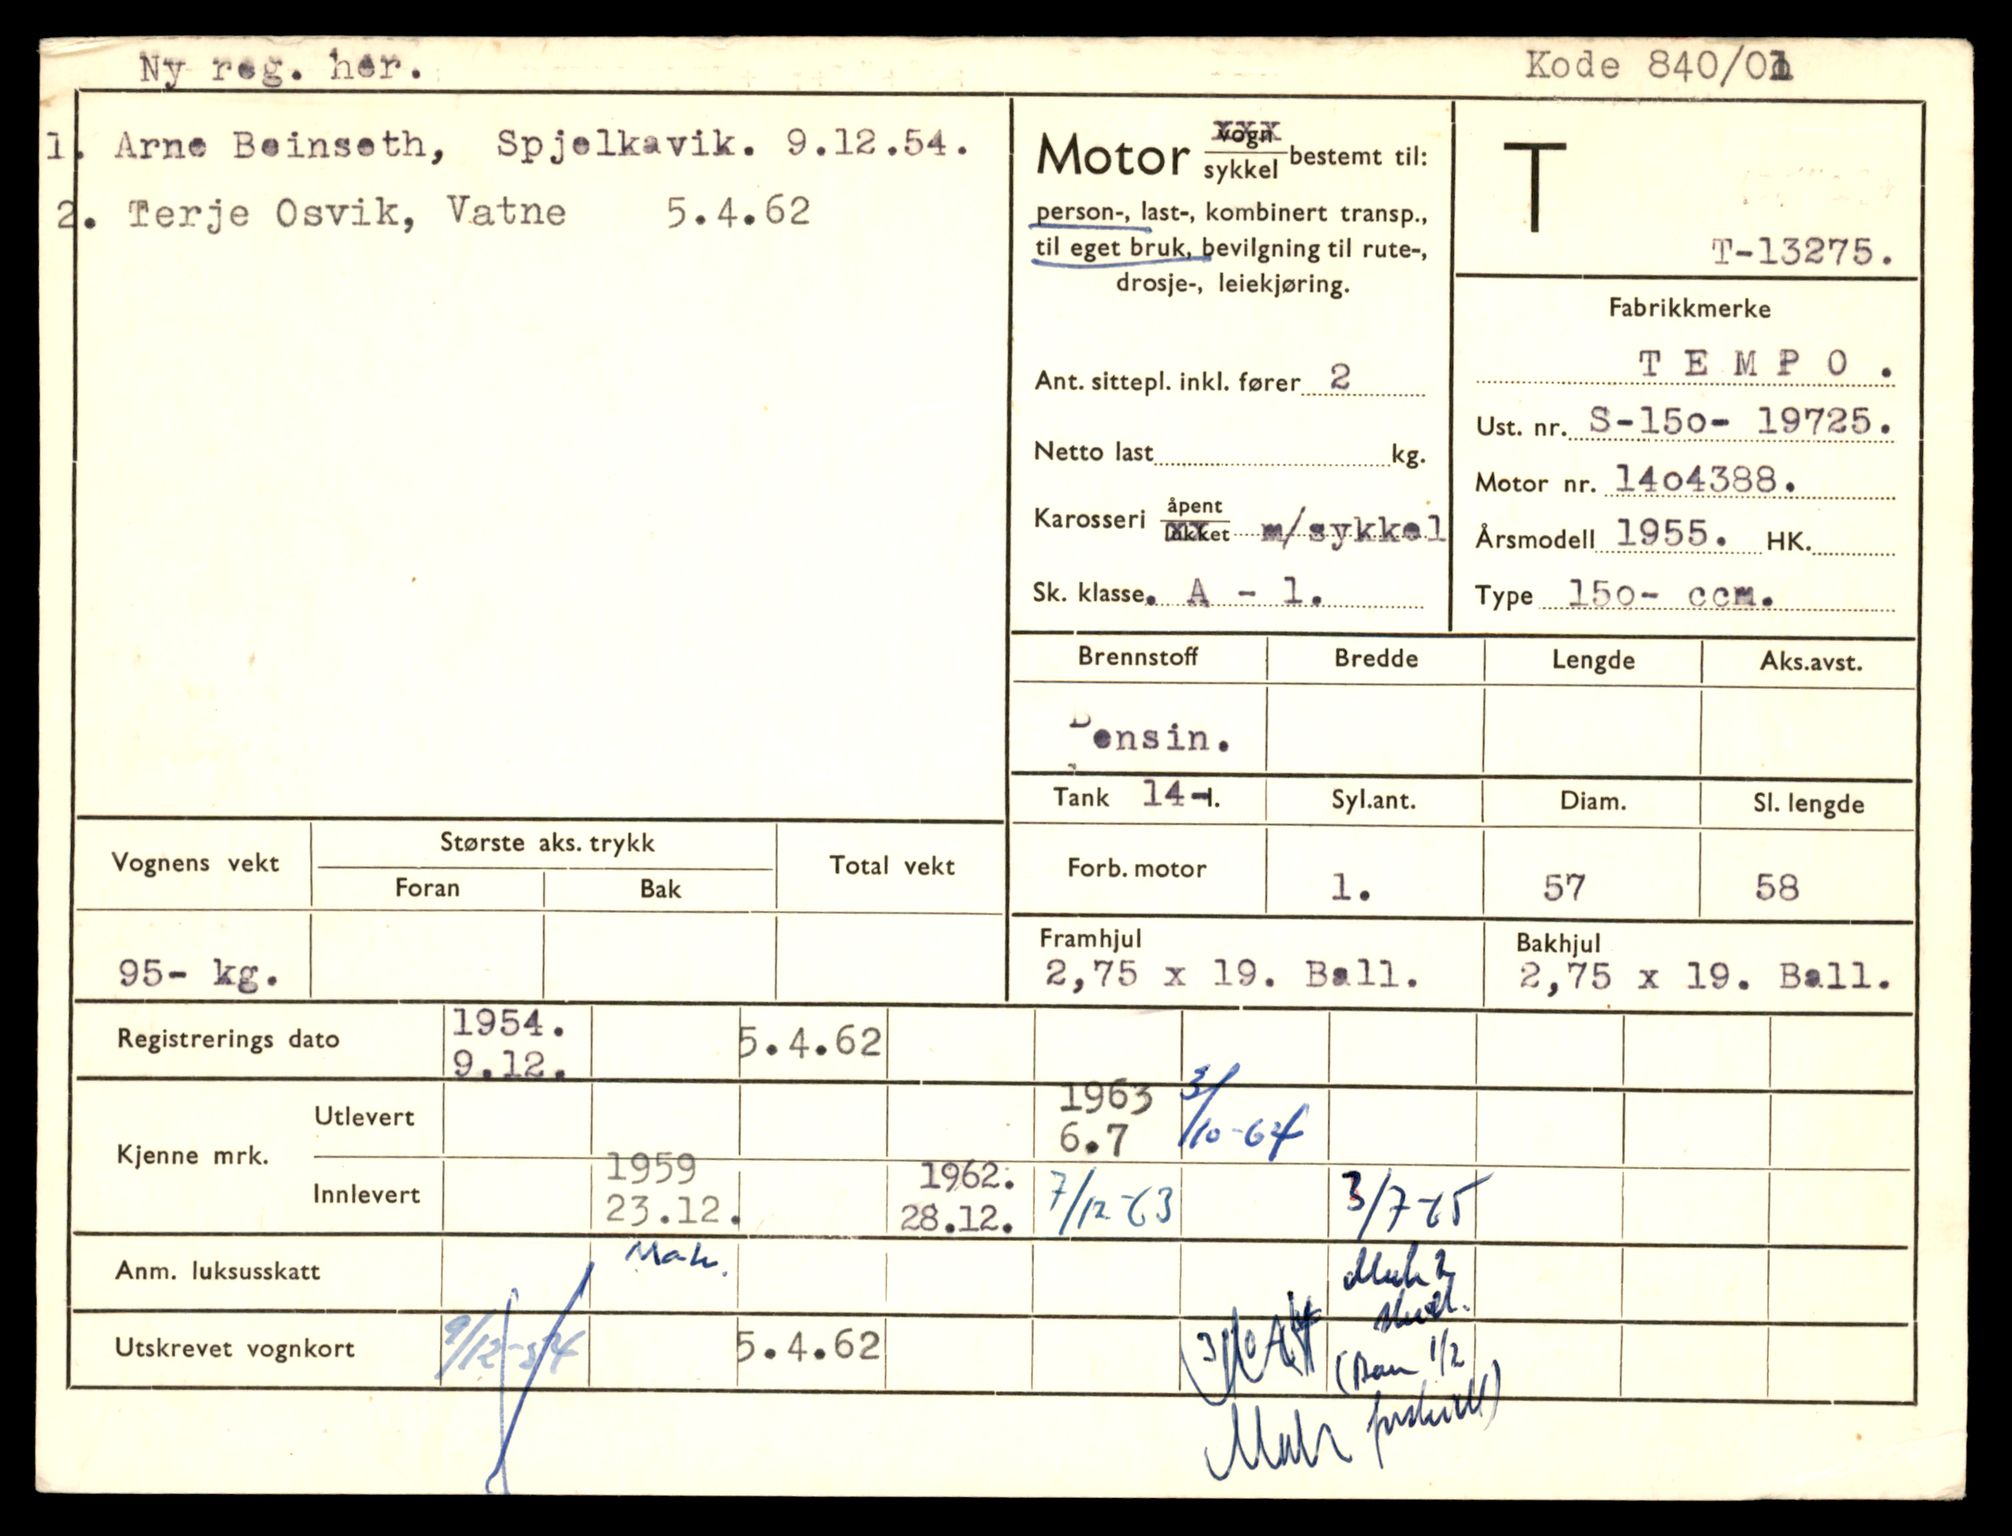 Ny reg. her.
Kode 840/01
1. Arne Beinseth, Spjelkavik. 9.12.54.
2. Terje Osvik, Vatne 5.4.62
Motor vogn/sykkel bestemt til:
person-, last-, kombinert transp.,
til eget bruk, bevilgning til rute-,
drosje-, leiekjøring.
Ant. sittepl. inkl. fører 2
Netto last kg.
Karosseri åpent/lukket m/sykkel
Sk. klasse. A - 1.
T
T-13275.
Fabrikkmerke
TEMPO.
Ust. nr. S-15o- 19725.
Motor nr. 14o4388.
Årsmodell 1955. HK.
Type 15o- ccm.
Brennstoff Bredde Lengde Aks.avst.
Bensin.
Tank 14-l. Syl.ant. Diam. Sl. lengde
Forb. motor 1. 57 58
Framhjul Bakhjul
2,75 x 19. Ball. 2,75 x 19. Ball.
Vognens vekt Største aks. trykk Total vekt
Foran Bak
95- kg.
Registrerings dato 1954. 9.12. 5.4.62
Kjenne mrk.
Utlevert 1963 6.7 3/10-64
Innlevert 1959 23.12. 1962. 28.12. 7/12-63 3/7-65
Anm. luksusskatt
Utskrevet vognkort 9/12-54 5.4.62